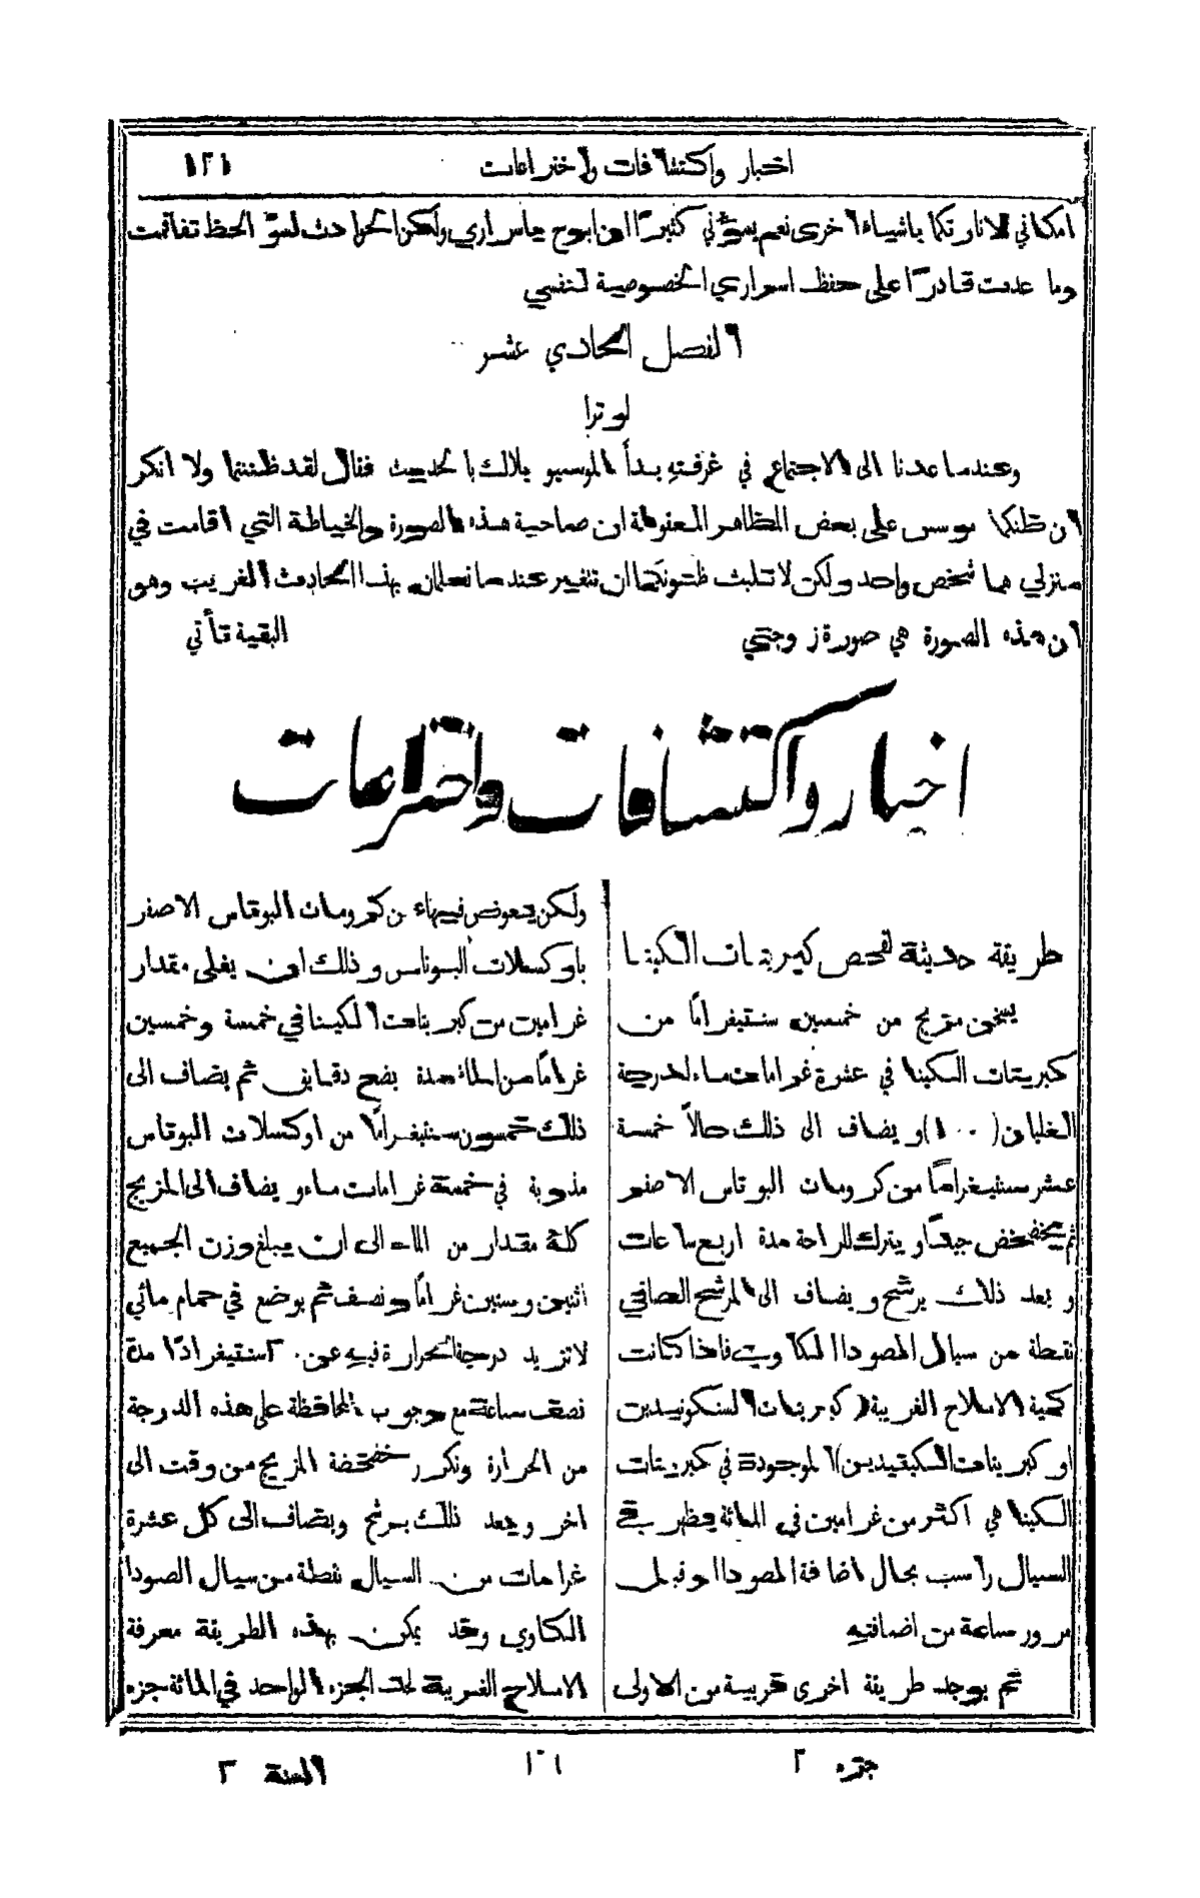 اخبار واكتشافات واختراعات ١٢١
امكاني لانارتكما باشياء اخرى نعم يسوّني كثيرًا ان ابوح باسراري ولكن الحوادث لسوّ الحظ تفاقمت
وما عدت قادرًا على حفظ اسراري الخصوصية لنفسي
الفصل الحادي عشر
لورا
وعندما عدنا الى الاجتماع في غرفتهِ بدأ الموسيو بلاك بالحديث فقال لقد ظننتما ولا انكر
ان ظنكما موسس على بعض المظاهر المغلوطة ان صاحبة هذه الصورة والخياطة التي اقامت في
منزلي هما شخص واحد ولكن لا تلبث ظنونكما ان تتغير عندما تعلمان بهذا الحادث الغريب وهو
ان هذه الصورة هي صورة زوجتي البقية تأتي
اخبار واكتشافات واختراعات
طريقة حديثة لفحص كبريتات الكينا
يسخن مزيج من خمسين سنتيغرامًا من
كبريتات الكينا في عشرة غرامات ماء لدرجة
الغليان (١٠٠) ويضاف الى ذلك حالاً خمسة
عشر سنتيغرامًا من كرومات البوتاس الاصفر
ثم يخضخض جيدًا ويترك للراحة مدة اربع ساعات
وبعد ذلك يرشح ويضاف الى المرشح الصافي
نقطة من سيال الصودا الكاويه فاذا كانت
كمية الاملاح الغريبة (كبريتات السنكونيدين
او كبريتات الكينيدين) الموجودة في كبريتات
الكينا هي اكثر من غرامين في المائة يظهر في
السيال راسب بحال اضافة الصودا او قبل
مرور ساعة من اضافتهِ
ثم يوجد طريقة اخرى قريبة من الاولى
ولكن يتعوض فيها عن كرومات البوتاس الاصفر
باوكسلات البوتاس وذلك ان يغلى مقدار
غرامين من كبريتات الكينا في خمسة وخمسين
غرامًا من الماء مدة بضع دقايق ثم يضاف الى
ذلك خمسون سنتيغرامًا من اوكسلات البوتاس
مذوبة في خمسة غرامات ماء ويضاف الى المزيج
كلهِ مقدار من الماء الى ان يبلغ وزن الجميع
اثنين وستين غرامًا ونصف ثم يوضع في حمام مائي
لا تزيد درجة الحرارة فيهِ عن ٢٠ سنتيغرادًا مدة
نصف ساعة مع وجوب المحافظة على هذه الدرجة
من الحرارة ونكرر خضخضة المزيج من وقت الى
اخر وبعد ذلك يرشح ويضاف الى كل عشرة
غرامات من السيال نقطة من سيال الصودا
الكاوي وقد يمكن بهذه الطريقة معرفة
الاملاح الغريبة لحد الجزء الواحد في المائة جزء
جزء ٢ ١٦ السنة ٢